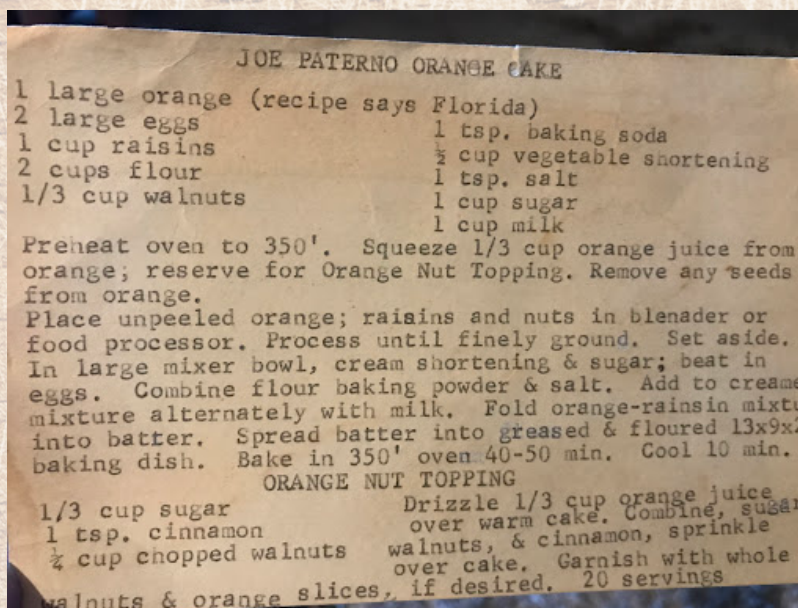 JOE PATERNO ORANGE CAKE
1 large orange (recipe says Florida)
2 large eggs
1 cup raisins
2 cups flour
1/3 cup walnuts
1 tsp. baking soda
½ cup vegetable shortening
1 tsp. salt
1 cup sugar
1 cup milk
Preheat oven to 350'. Squeeze 1/3 cup orange juice from
orange; reserve for Orange Nut Topping. Remove any seeds
from orange.
Place unpeeled orange; raisins and nuts in blenader or
food processor. Process until finely ground. Set aside.
In large mixer bowl, cream shortening & sugar; beat in
eggs. Combine flour baking powder & salt. Add to creame
mixture alternately with milk. Fold orange-rainsin mixtu
into batter. Spread batter into greased & floured 13x9x2
baking dish. Bake in 350' oven 40-50 min. Cool 10 min.
ORANGE NUT TOPPING
1/3 cup sugar
1 tsp. cinnamon
¼ cup chopped walnuts
Drizzle 1/3 cup orange juice
over warm cake. Combine, sugar
walnuts, & cinnamon, sprinkle
over cake. Garnish with whole
walnuts & orange slices, if desired. 20 servings